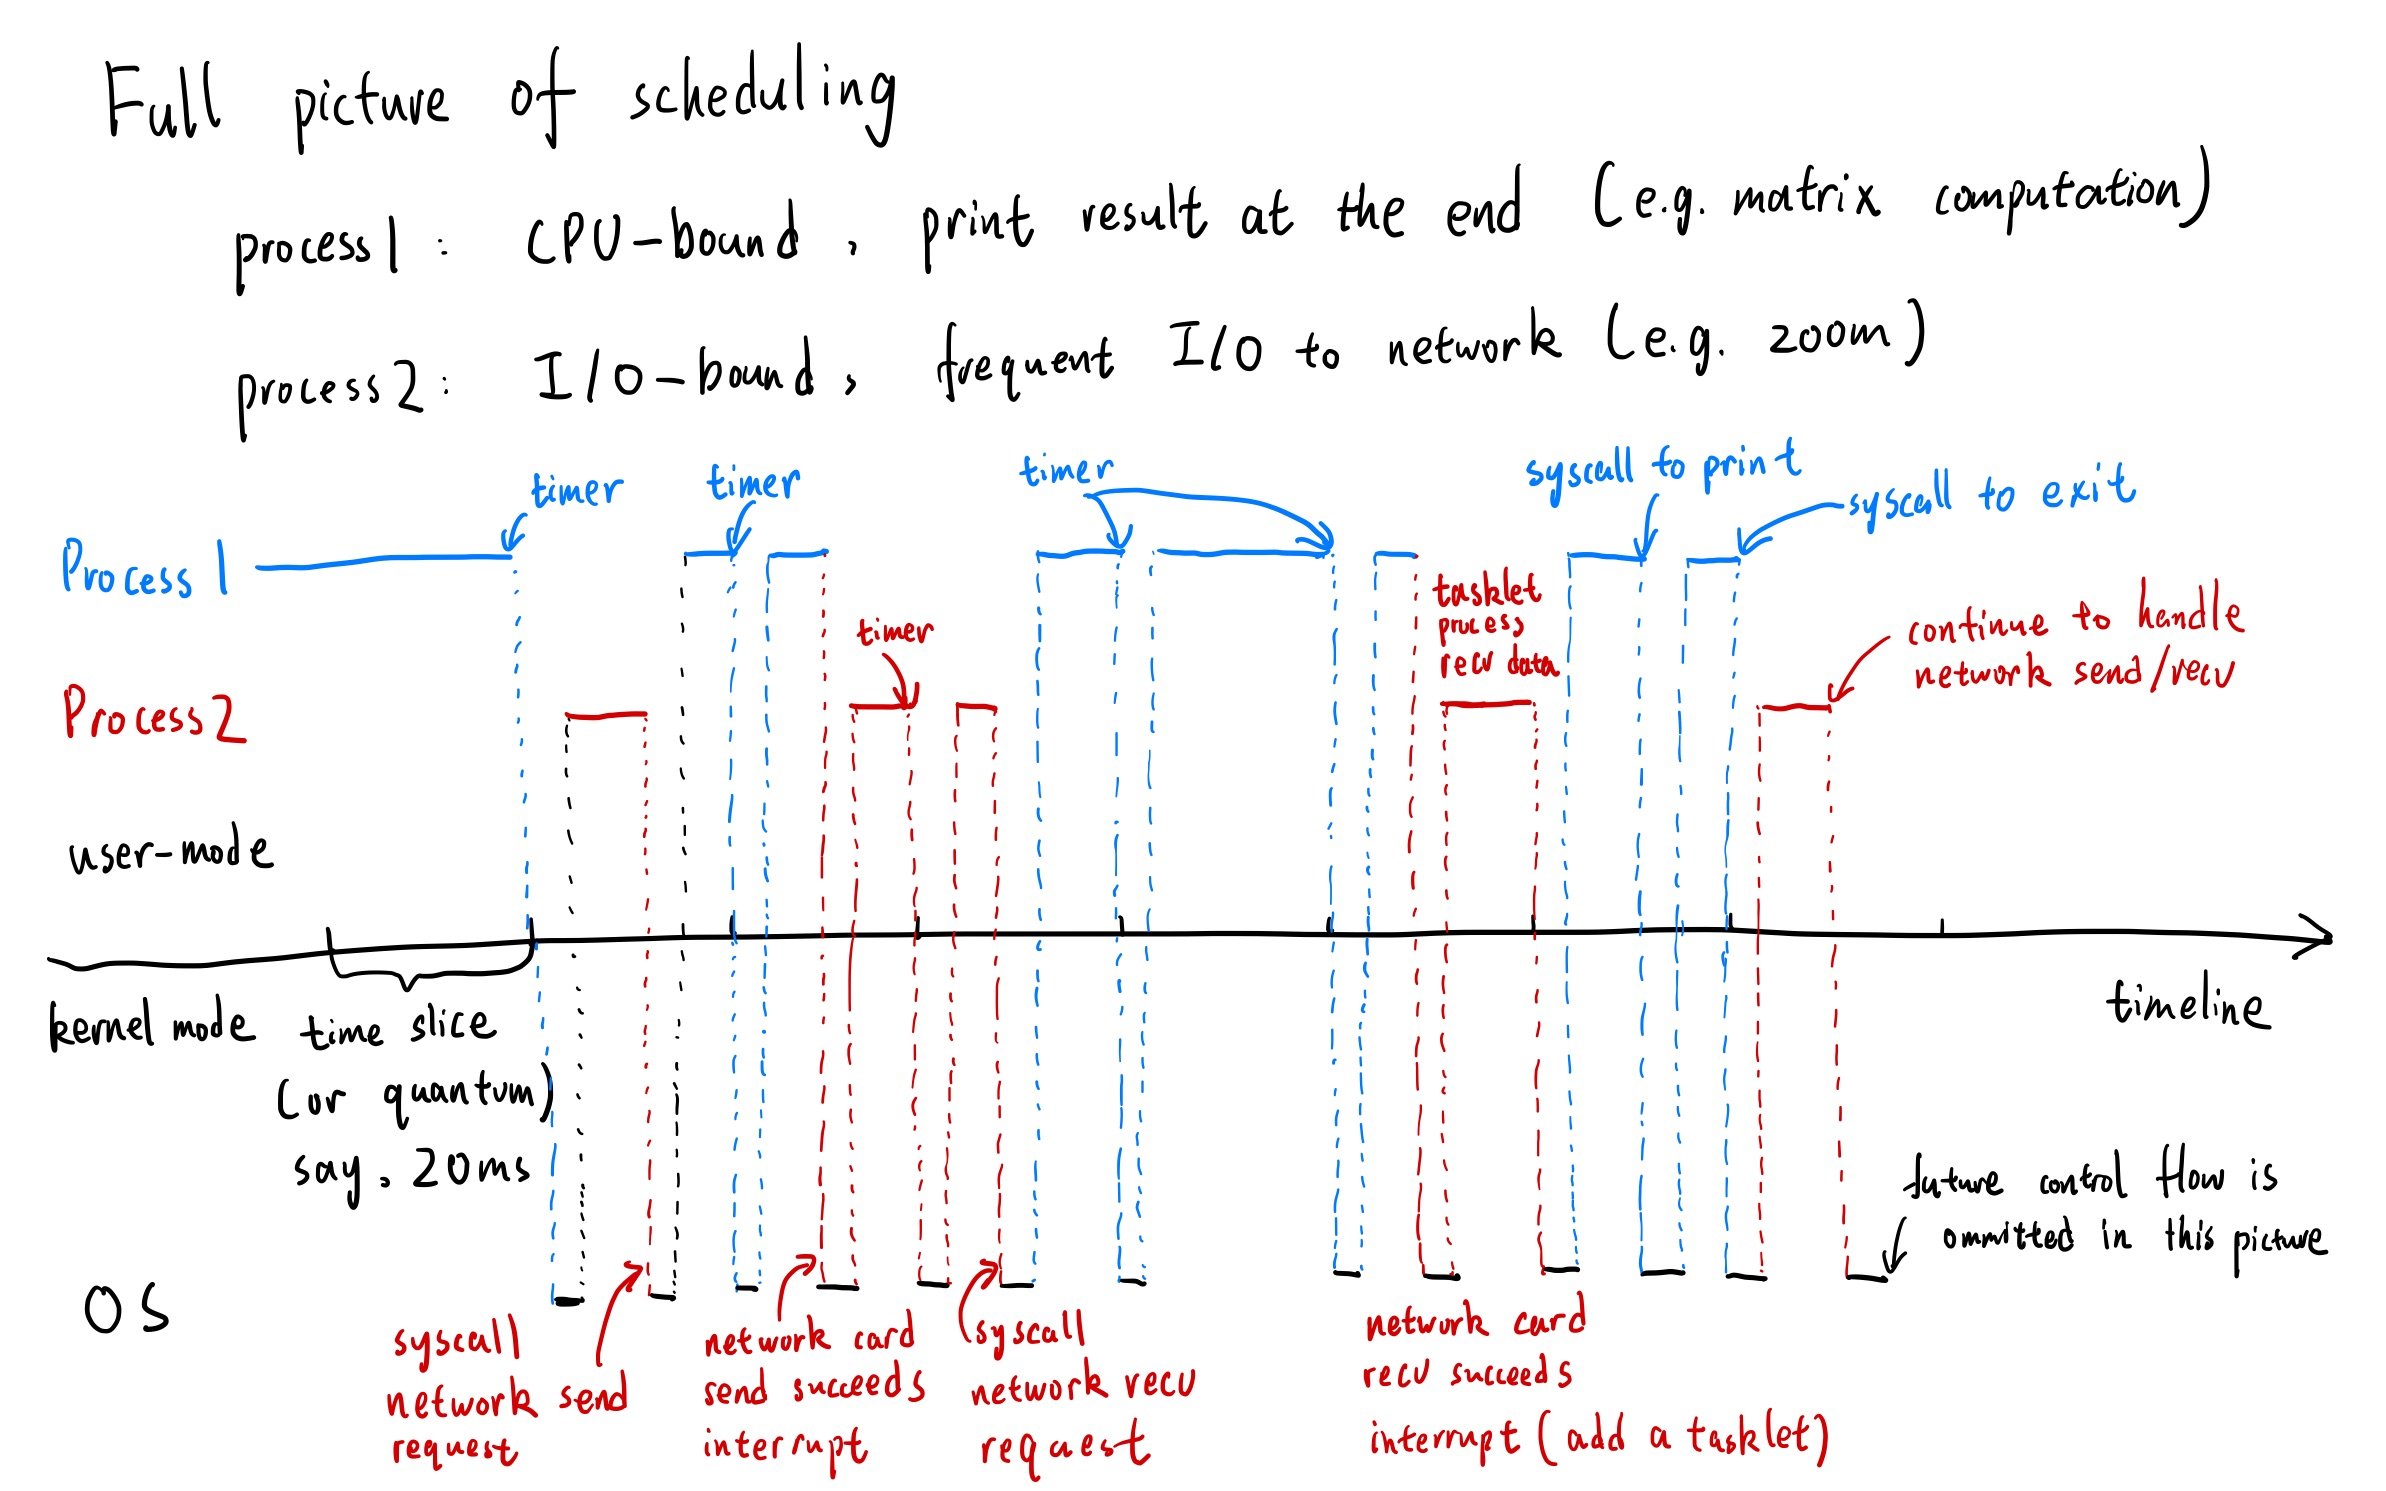 Full picture of scheduling
process1: CPU-bound, print result at the end (e.g. matrix computation)
process2: I/O-bound, frequent I/O to network (e.g. zoom)
timer
timer
timer
syscall to print
syscall to exit
Process1
timer
tasklet
process
recv data
continue to handle
network send/recv
Process2
user-mode
kernel mode
time slice
(or quantum)
say, 20ms
timeline
future control flow is
ommitted in this picture
OS
syscall
network send
request
network card
send succeeds
interrupt
syscall
network recv
request
network card
recv succeeds
interrupt (add a tasklet)